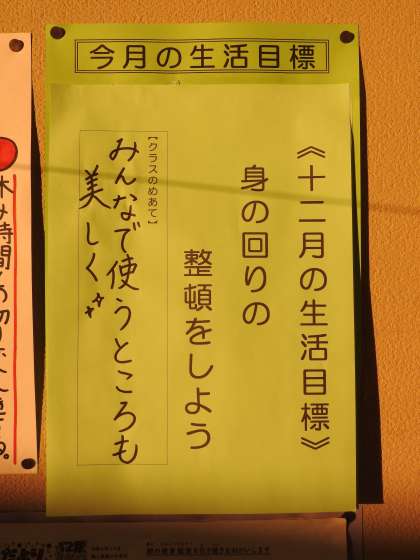 今月の生活目標
《十二月の生活目標》
身の回りの
整頓をしよう
【クラスのめあて】
みんなで使うところも
美しく
休み時間